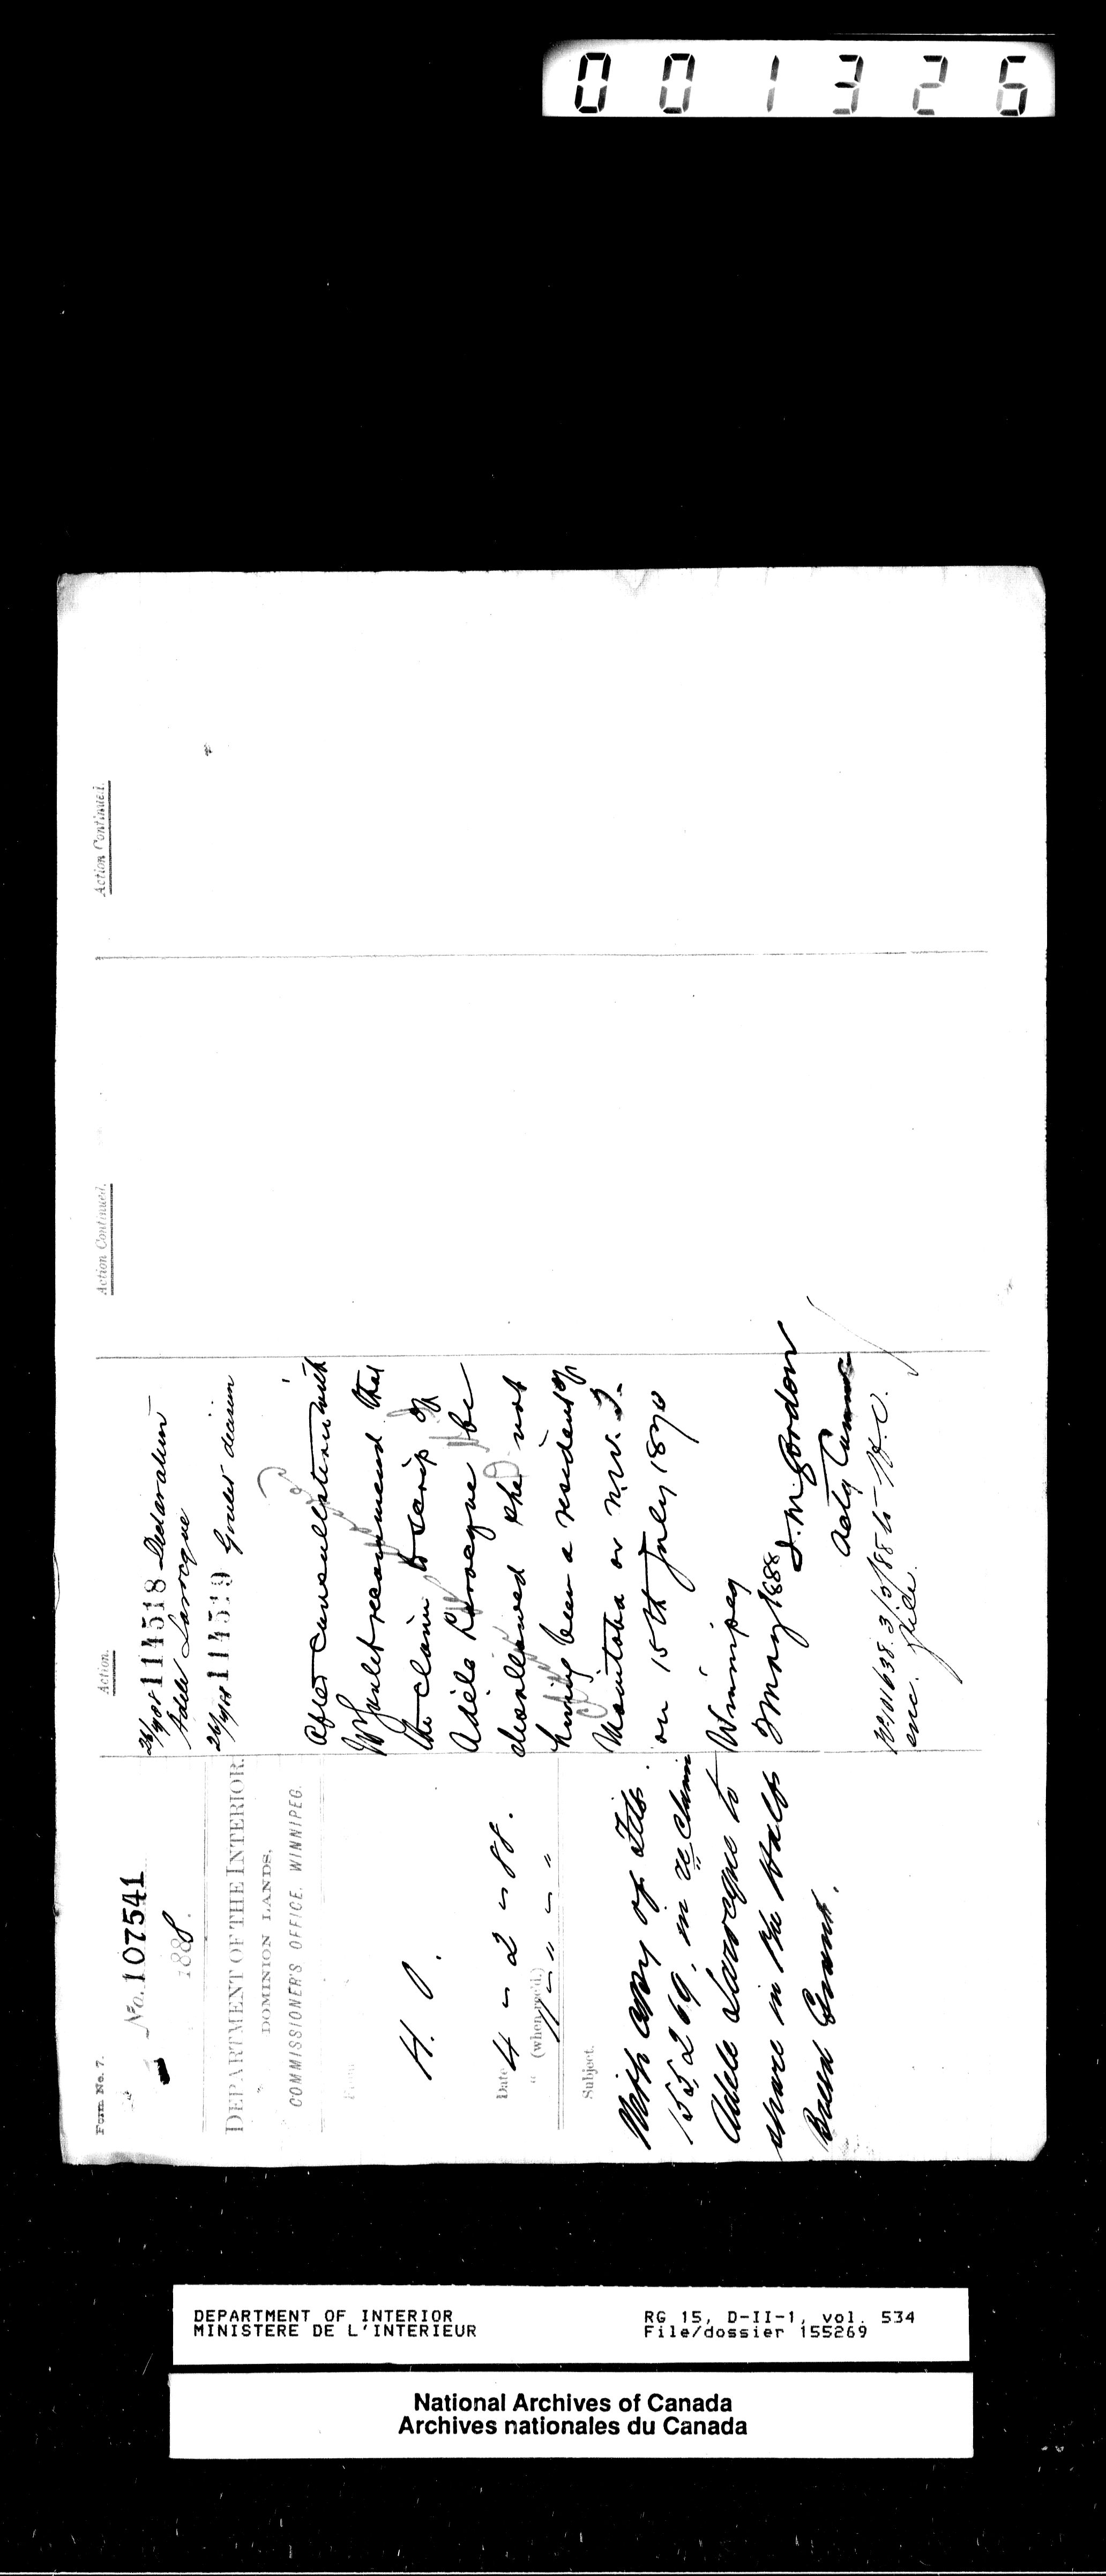 001326
Form No. 7.
No. 107541
1888.
DEPARTMENT OF THE INTERIOR.
DOMINION LANDS,
COMMISSIONER'S OFFICE. WINNIPEG.
From
H. O.
Date 4 - 2 - 88.
" (when rec'd.)
Subject.
With copy of File
155269, in re Claim
Adele Larocque to
share in the Half
Breed Grant.
Action.
114518 Declaration
Adele Larocque
114519 decision
After consultation with
recommend that
the claim to scrip of
Adèle Larocque be
disallowed she not
having been a resident of
Manitoba or N.W.T.
on 15th July 1870
Winnipeg
May 1888
Gordon
Actg
H.O.
enc. file.
Action Continued.
Action Continued.
DEPARTMENT OF INTERIOR
MINISTERE DE L'INTERIEUR
RG 15, D-II-1, vol. 534
File/dossier 155269
National Archives of Canada
Archives nationales du Canada